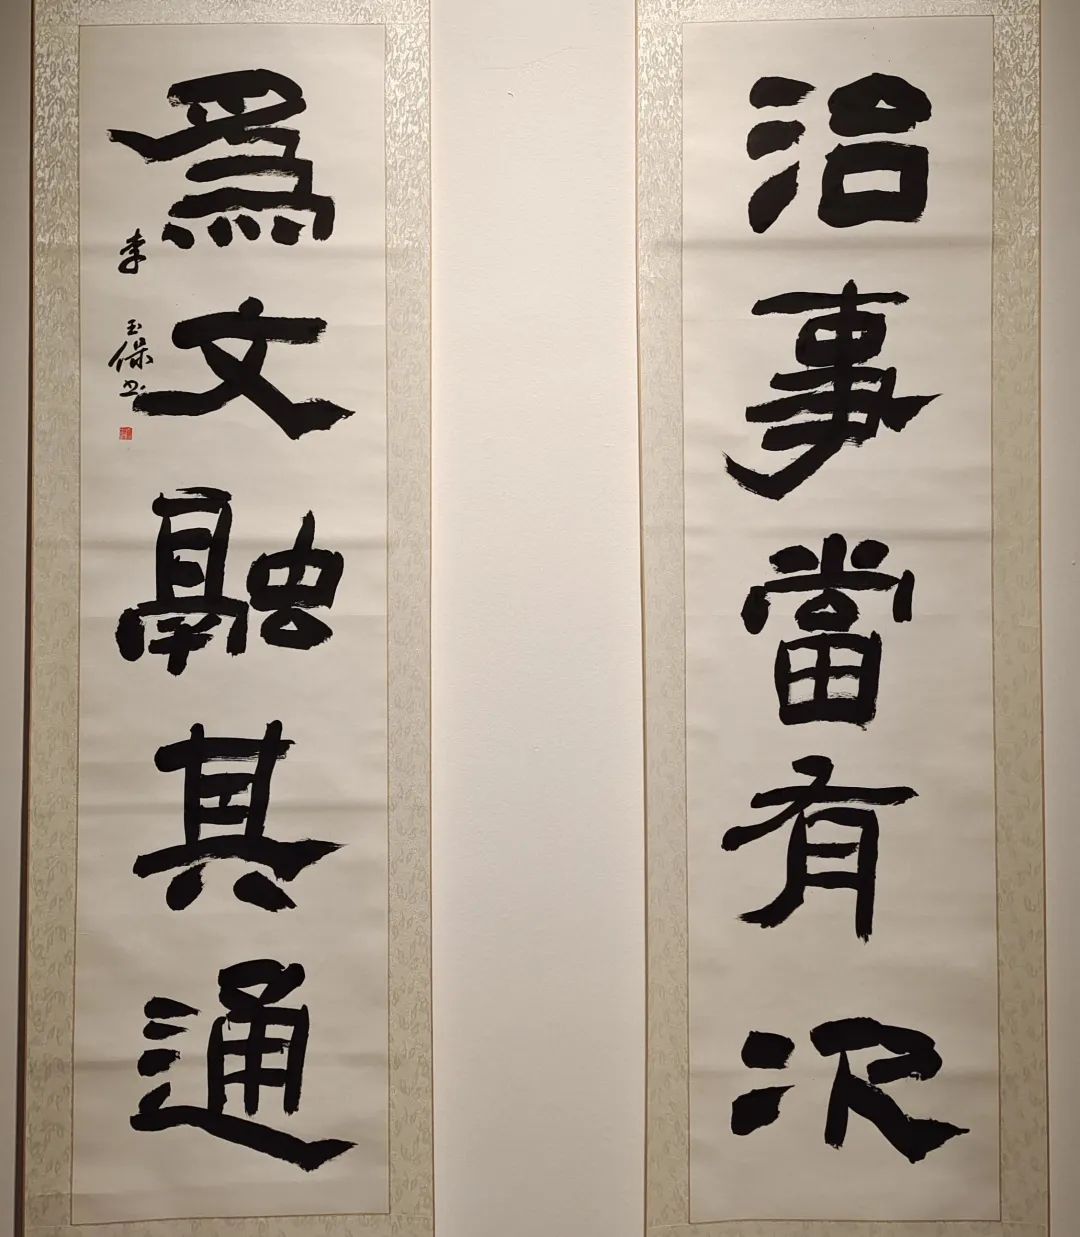 治事當有次
爲文融其通
李玉保书